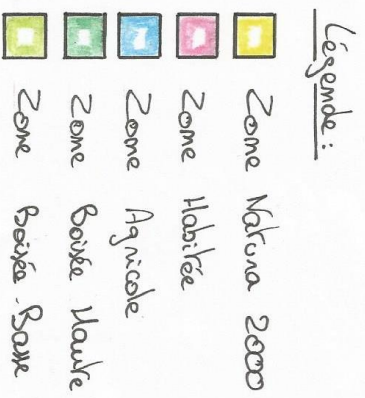 Légende :
Zone Natura 2000
Zone Habitée
Zone Agricole
Zone Boisée Haute
Zone Boisée Basse